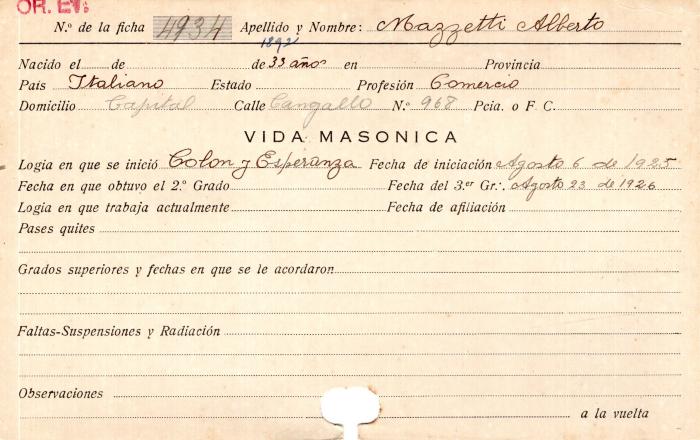 OR. ET.
N.º de la ficha 4934 Apellido y Nombre: Mazzetti Alberto
1892
Nacido el de de 33 años en Provincia
País Italiano Estado Profesión Comercio
Domicilio Capital Calle Cangallo N.º 968 Pcia. o F. C.
VIDA MASONICA
Logia en que se inició Colon y Esperanza Fecha de iniciación Agosto 6 de 1925
Fecha en que obtuvo el 2.º Grado Fecha del 3.er Gr.·. Agosto 23 de 1926
Logia en que trabaja actualmente Fecha de afiliación
Pases quites
Grados superiores y fechas en que se le acordaron
Faltas-Suspensiones y Radiación
Observaciones
a la vuelta